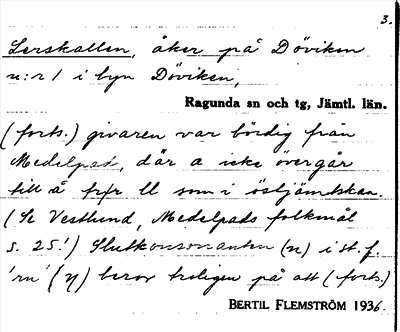 3.
Lerskallen, åker på Döviken
n:r 1 i byn Döviken,
Ragunda sn och tg, Jämtl. län.
(forts.) givaren var bördig från
Medelpad, där a icke övergår
till å före ll som i östjämtskan.
(Se Vestlund, Medelpads folkmål
s. 25!) Slutkonsonanten (n) i st. f.
'rn' (η) beror troligen på att (forts.)
BERTIL FLEMSTRÖM 1936.